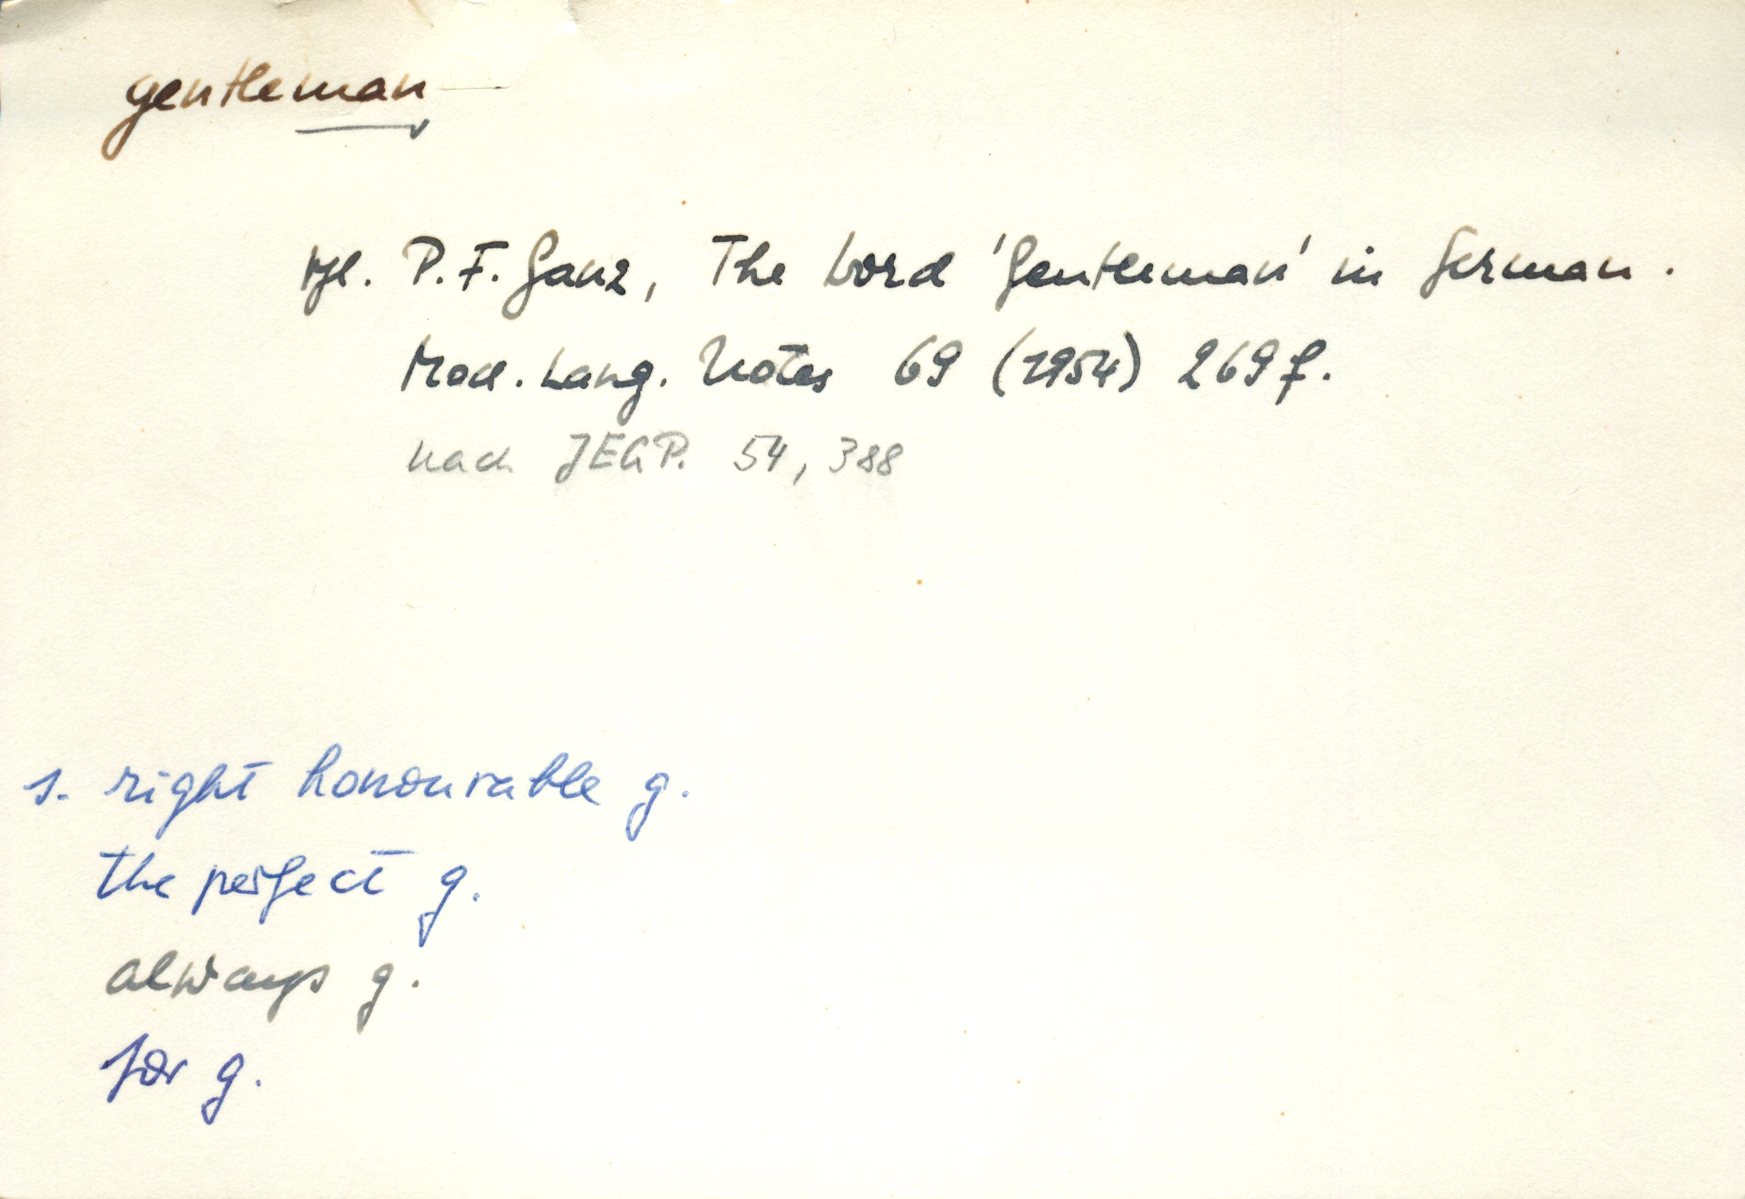 gentleman
vgl. P.F. Ganz, The Word 'Gentleman' in German.
Mod. Lang. Notes 69 (1954) 269f.
nach JEGP. 54, 388
s. right honourable g.
the perfect g.
always g.
for g.